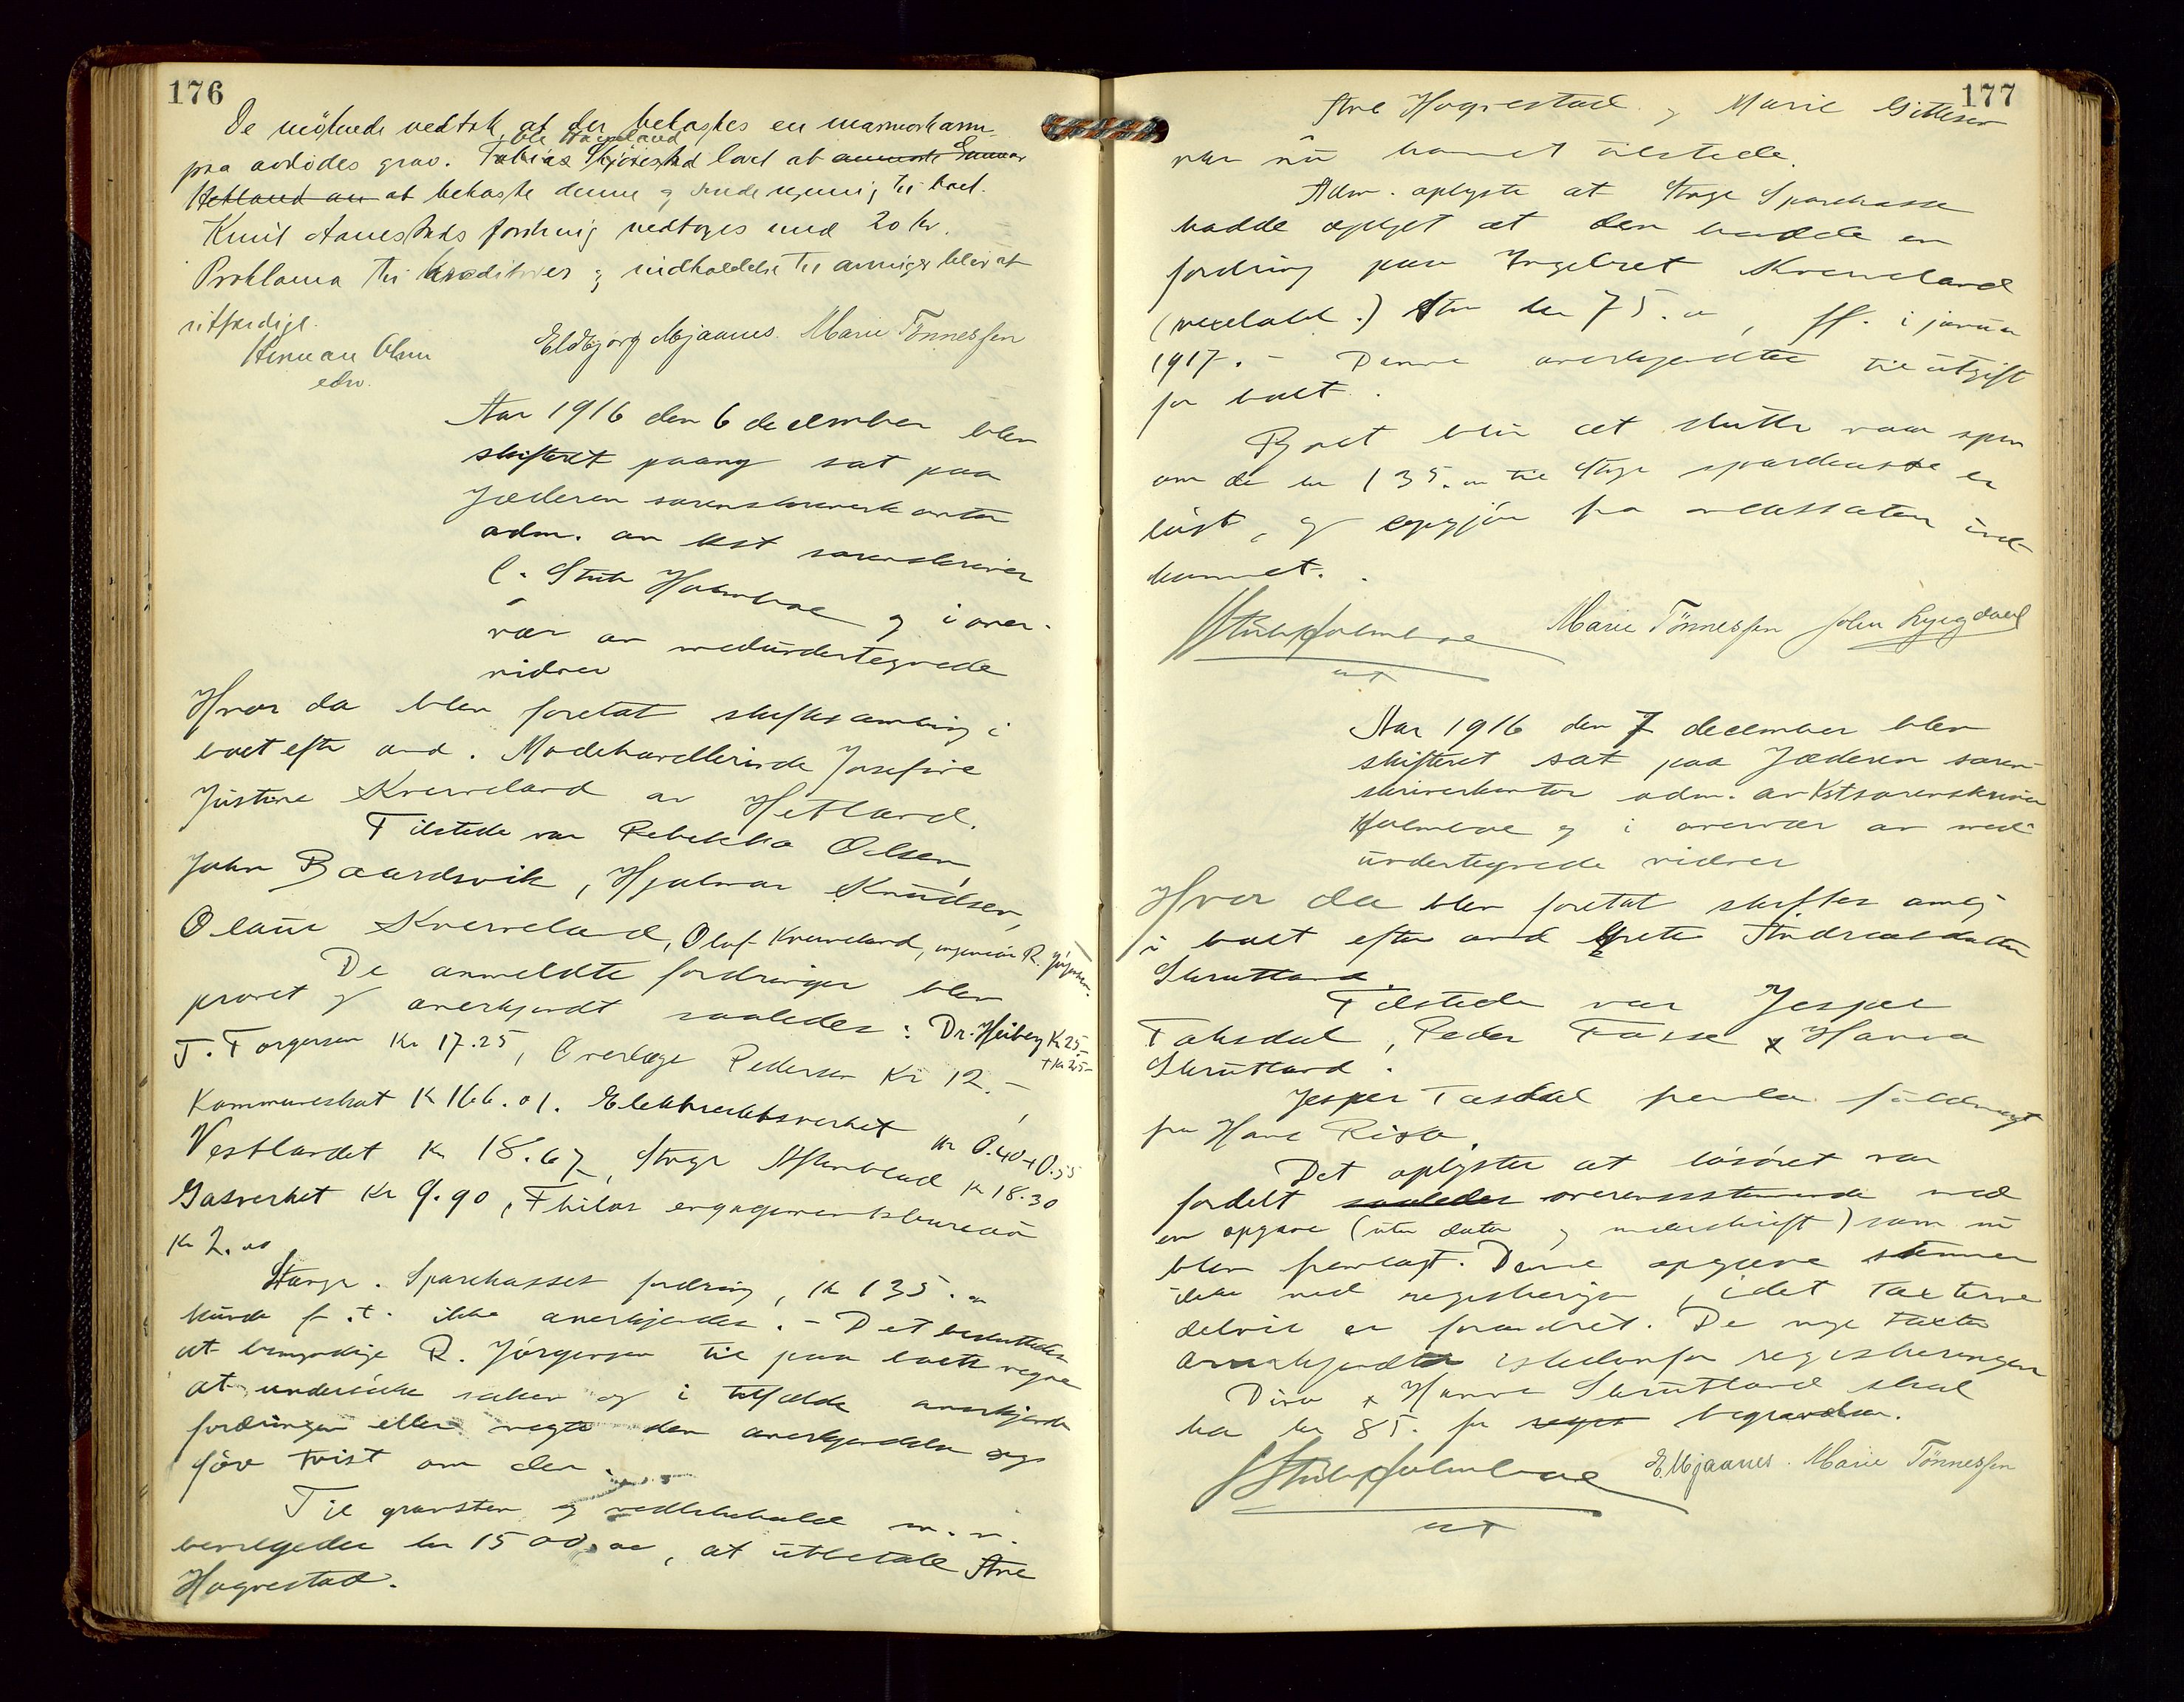 176
De mötende vedtok at der bekostes en marmorkam
Ole Haugland
paa avdödes grav. Tobias Skjöristad lovet at
Hetland an at bekoste denne og sende regning til boet.
Knut Aanestads fordring nedtoges med 20 kr.
Proklama til kreditorer og indkaldelse til arvinger blev at
utfærdige.
Herman Olsen
edsv.
Eldbjörg Mjaanes. Marie Tönnessen
Aar 1916 den 6 december blev
skifteret paany sat paa
Jæderen sorenskriverkontor
adm. av kst sorenskriver
C. Stub Holmboe og i over-
vær av medundertegnede
vidner
Hvor da blev foretat skiftesamling i
boet efter avd. Modehandlerinde Josefine
Justine Kverneland av Hetland.
Tilstede var Rebekka Olsen,
John Baardsvik, Hjalmar Knudsen,
Olaue Kverneland, Olaf Kverneland, ingeniör R. Jörgensen.
De anmeldte fordringer blev
prövet og anerkjendt saaledes: Dr. Heiberg K 25
+ Kr 25-
T. Torgersen Kr 17.25, Overlæge Pedersen Kr 12.-,
Kommuneskat K 166.01. Elektricitetsverket
kr 0.40+0.55
Vestlandet K 18.67, Stvgr Aftenblad K 18.30
Gasverket Kr 9.90, Thilos engagementsbureau
Kr 2.00
Stavgr. Sparekasses fordring, K 135.00
kunde f.t. ikke anerkjendes. - Det besluttedes
at bemyndige R. Jörgensen til paa boets vegne
at undersöke saken og i tilfælde anerkjende
fordringen eller negte den anerkjendelse og
före tvist om den.
Til gravsten og vedlikehold m.v.
bevilgedes kr 1500.00, at utbetale Ane
Hognestad.
177
Ane Hognestad og Marie Gittesen
var nu kommet tilstede.
Adm. oplyste at Stvgr Sparekasse
hadde oplyst at den hadde en
fordring paa Ingebret Kverneland
(vexelobl.) stor kr 75.00, ff. i januar
1917. - Denne anerkjendtes til utgift
for boet.
Boet blir at slutte naar spm
om de kr 135.00 til Stvgr sparekasse er
löst, og opgjör fra incassator ind-
kommet.
Stub Holmboe
cst
Marie Tönnessen John Rygdael
Aar 1916 den 7 december blev
skifteret sat paa Jæderen soren-
skriverkontor adm. av Kst sorenskriver
Holmboe og i overvær av med-
undertegnede vidner
Hvor da blev foretat skiftesamlg
i boet efter avd Grete Andreasdatter
Skrutland.
Tilstede var Jesper
Taksdal, Peder Fuisse & Hanna
Skrutland.
Jesper Tasdal fremla fuldmagt
fra Hans Riska.
Det oplystes at lösöret var
fordelt saaledes overensstemmende med
en opgave (uten dato og underskrift) som nu
blev fremlagt. Denne opgave stemmer
ikke med registeringen, idet taxterne
delvis er forandret. De nye taxter
anerkjendtes istedenfor registeringen
Dina & Hanna Skrutland skal
ha kr 85. for begravelsen.
Stub Holmboe
cst
E. Mjaanes. Marie Tönnessen